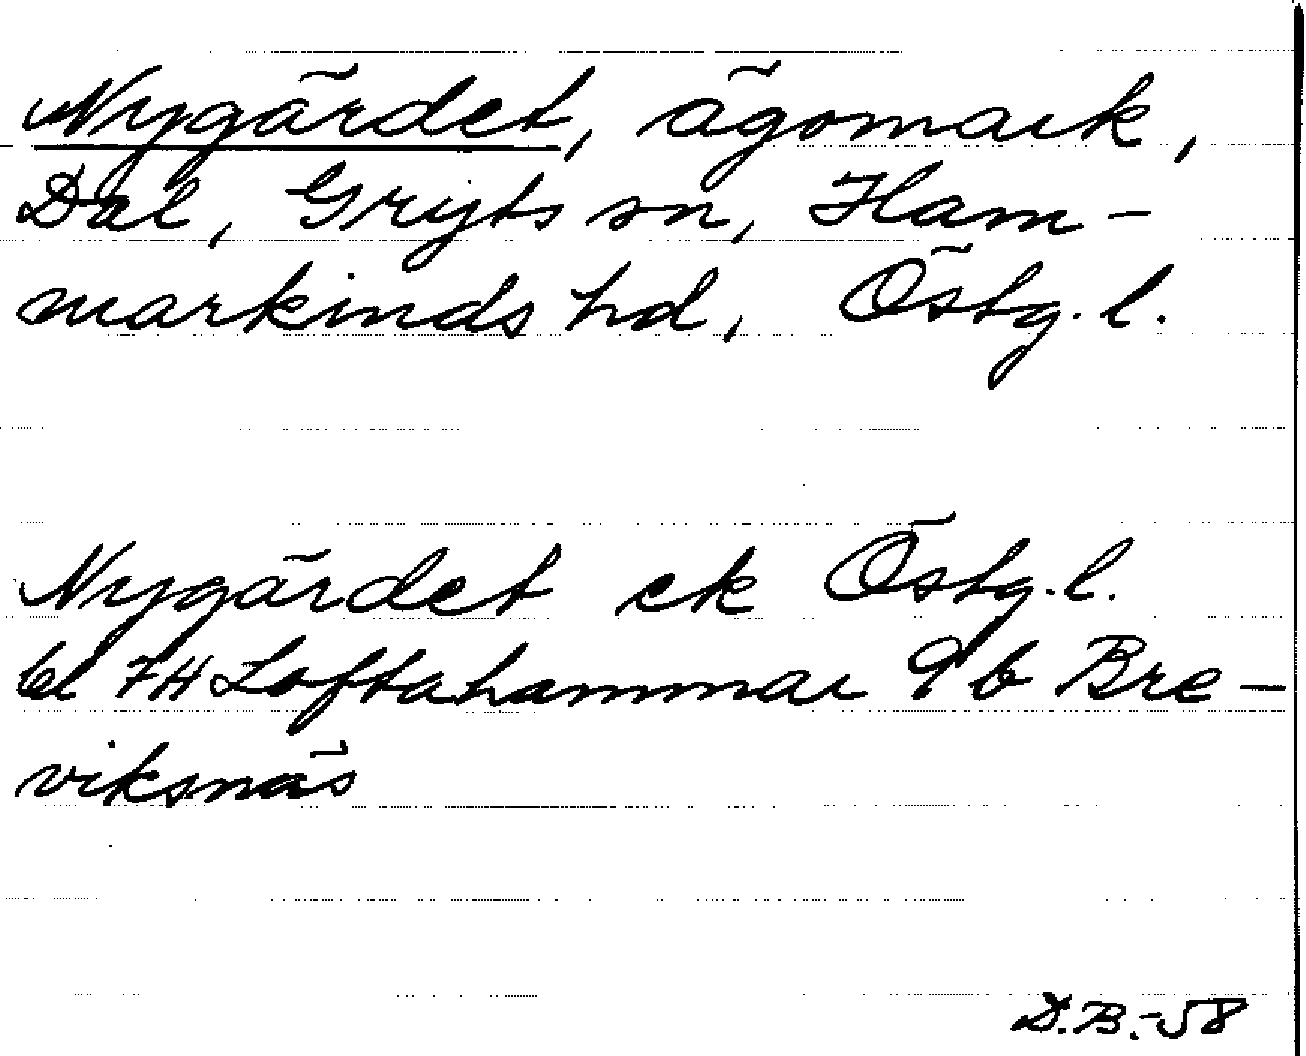 Nygärdet, ägomark,
Dal, Gryts sn, Ham-
markinds hd, Östg. l.
Nygärdet ek Östg. l.
bl 7H Loftahammar 9b Bre-
viksnäs
D.B.-58